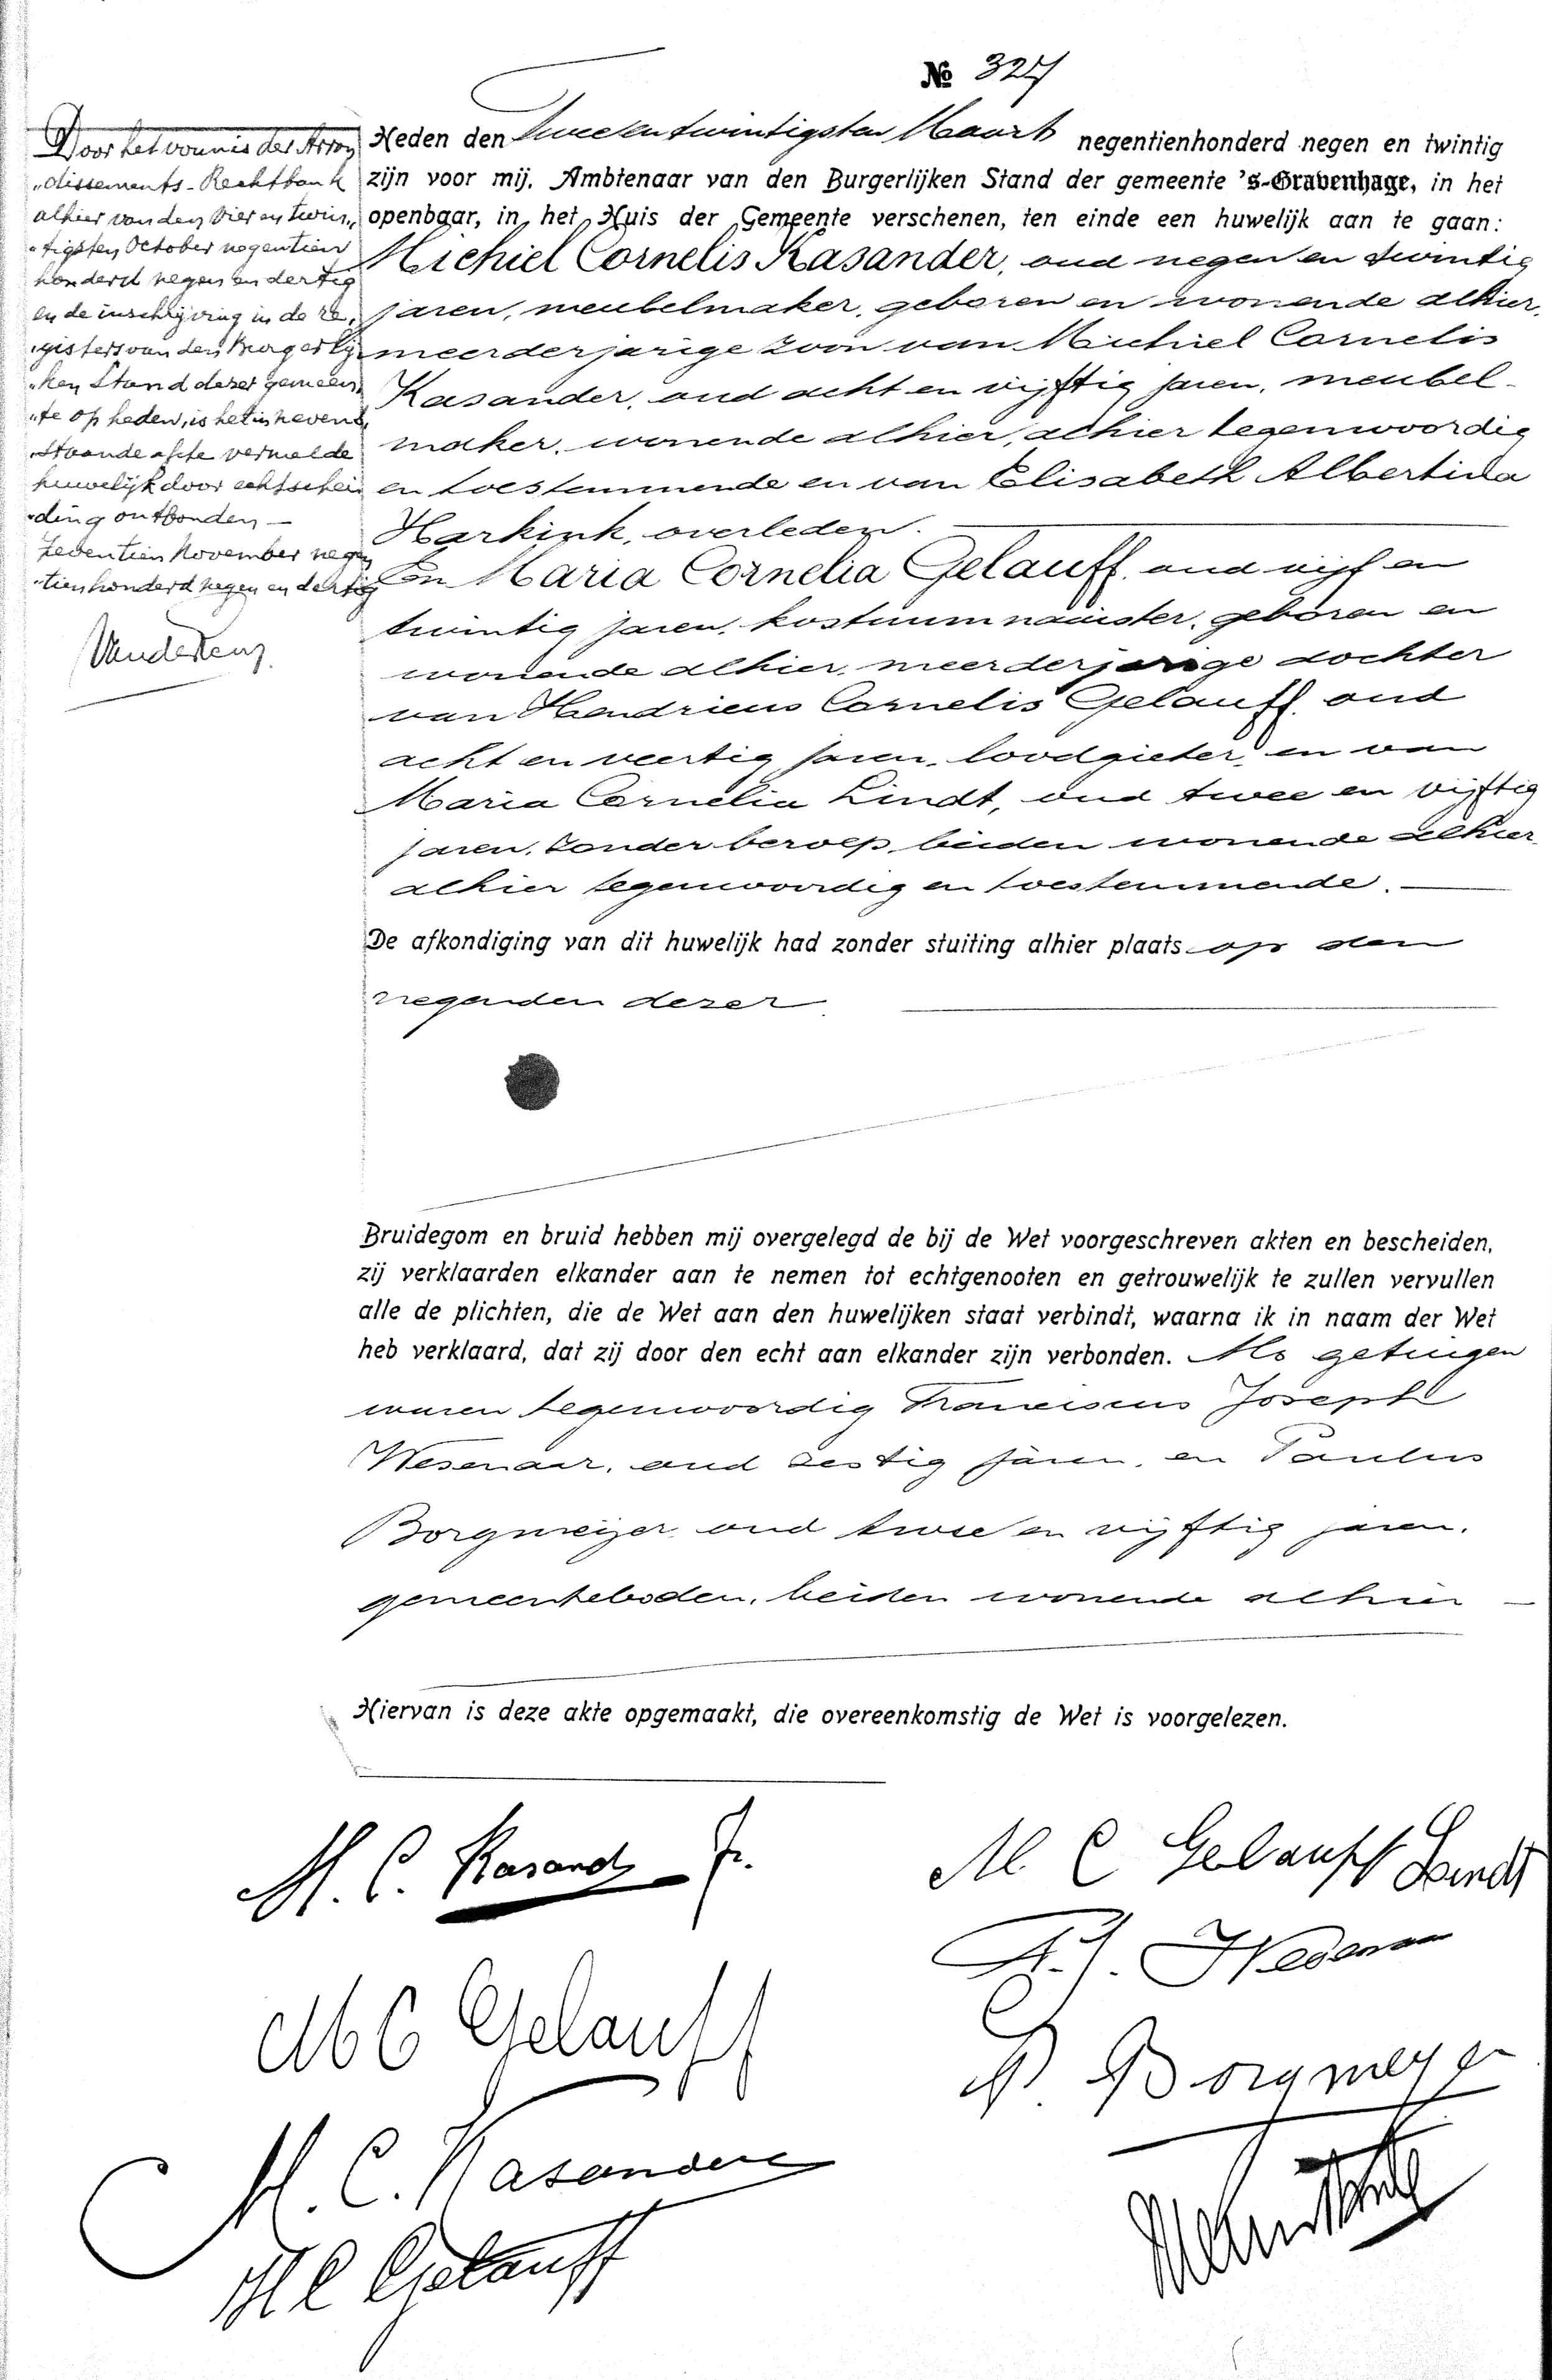 № 327
Heden den Tweeentwintigsten Maart negentienhonderd negen en twintig
zijn voor mij, Ambtenaar van den Burgerlijken Stand der gemeente 's-Gravenhage, in het
openbaar, in het Huis der Gemeente verschenen, ten einde een huwelijk aan te gaan:
Michiel Cornelis Kasander, oud negen en twintig
jaren, meubelmaker, geboren en wonende alhier,
meerderjarige zoon van Michiel Cornelis
Kasander, oud acht en vijftig jaren, meubel-
maker, wonende alhier, alhier tegenwoordig
en toestemmende en van Elisabeth Albertina
Harkink, overleden.
En Maria Cornelia Gelauff, oud vijf en
twintig jaren, kostuumnaaister, geboren en
wonende alhier, meerderjarige dochter
van Hendricus Cornelis Gelauff, oud
acht en veertig jaren, loodgieter, en van
Maria Cornelia Lindt, oud twee en vijftig
jaren, zonder beroep, beiden wonende alhier
alhier tegenwoordig en toestemmende.
De afkondiging van dit huwelijk had zonder stuiting alhier plaats op den
negenden dezer.
Bruidegom en bruid hebben mij overgelegd de bij de Wet voorgeschreven akten en bescheiden,
zij verklaarden elkander aan te nemen tot echtgenooten en getrouwelijk te zullen vervullen
alle de plichten, die de Wet aan den huwelijken staat verbindt, waarna ik in naam der Wet
heb verklaard, dat zij door den echt aan elkander zijn verbonden. Als getuigen
waren tegenwoordig Franciscus Joseph
Wesenaar, oud zestig jaren, en Paulus
Borgmeijer, oud twee en vijftig jaren,
gemeenteboden, beiden wonende alhier
Hiervan is deze akte opgemaakt, die overeenkomstig de Wet is voorgelezen.
Door het vonnis der Arron
„dissements-Rechtbank
alhier van den vier en twin„
„tigsten October negentien
honderd negen en dertig
en de inschrijving in de re„
„gisters van den Burgerlij„
„ken Stand dezer gemeen„
„te op heden, is het in nevens„
„staande akte vermelde
huwelijk door echtschei„
„ding ontbonden —
Zeventien November negen
„tienhonderd negen en dertig
M. C. Kasander Jr.
M C Gelauff Lindt
F. J. Wesenaar
M C Gelauff
P. Borgmeyer
M. C. Kasander
H C Gelauff